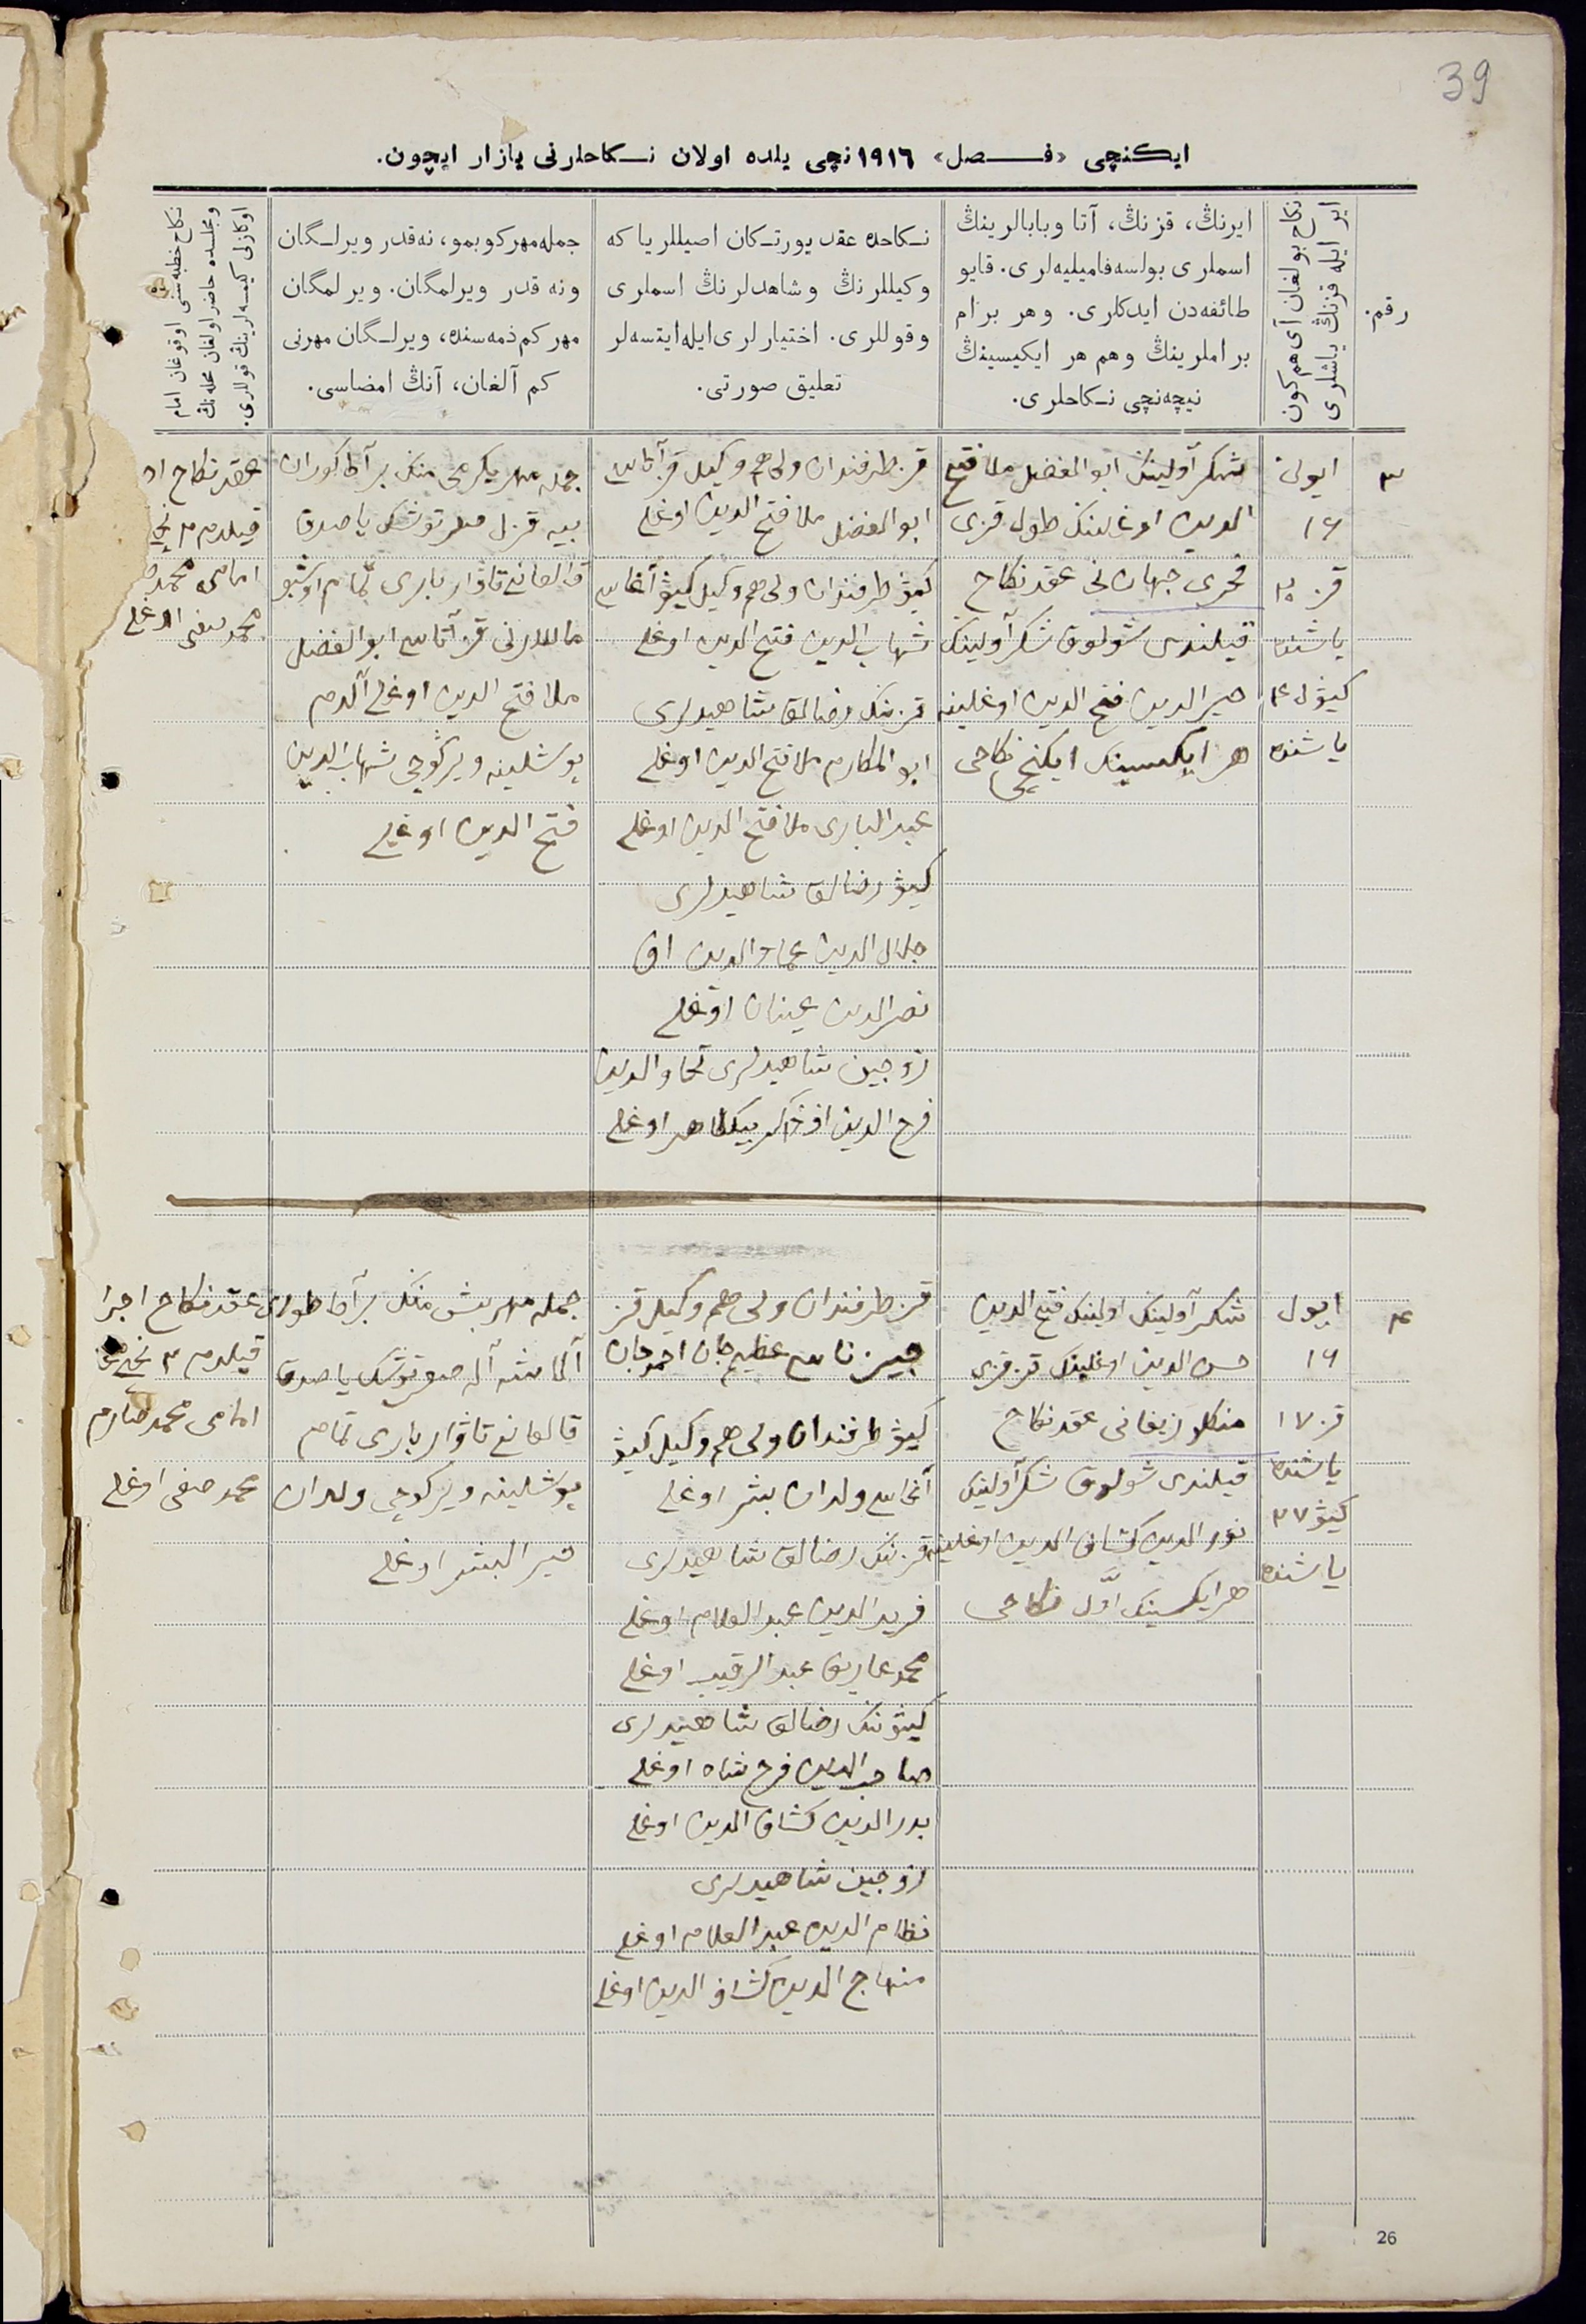 39
ایکنچی «فـصل» ۱۹۱٦نچی یلده اولان نـکاحلرنی یازار ایچون.
رقم.
نکاح بولغان آی هم کون
ایر ایله قزنڭ یاشلری
ایرنڭ، قزنڭ، آتا وبابالرینڭ
اسملری بولسه فامیلیه‌لری. قایو
طائفه‌دن ایدکلری. وهر برام
براملرینڭ وهم هر ایکیسینڭ
نیچه‌نچی نـکاحلری.
نـکاحده عقد یورتـکان اصیللر یا که
وکیللرنڭ وشاهدلرنڭ اسملری
وقوللری. اختیارلری ایله ایتسه‌لر
تعلیق صورتی.
جمله مهر کوبمو، نه قدر ویرلـگان
ونه قدر ویرلمگان. ویرلمگان
مهر کم ذمه‌سنده، ویرلـگان مهرنی
کم آلغان، آنڭ امضاسی.
نکاح خطبه‌سنی اوقوغان امام
ومجلسده حاضر اولغان محله‌نڭ
اوکازلی کیمسه‌لرینڭ قوللری.
۳
ایول
۱۶
قز
یاشنده
کیوْ
یاشنده
شکر آولینک ابوالفضل ملا فتح
الدین اوغلینک طول قزی
فخری جهان نی عقد نکاح
قیلندی شولوق شکر آولینک
خیر الدین فتح الدین اوغلینه
هر ایکیسینک ایکنچی نکاحی
قز طرفندان ولی هم وکیل قز آتاسی
ابوالفضل ملا فتح الدین اوغلی
کیوْ طرفندان ولی هم وکیل کیوْ آغاسی
شهاب الدین فتح الدین اوغلی
قزننک رضالق شاهیدلری
ابوالمکارم ملا فتح الدین اوغلی
عبدالباری ملا فتح الدین اوغلی
کیوْ رضالق شاهیدلری
جلال الدین عماد الدین اوق
نصر الدین اوغلی
زوجین شاهیدلری
فرج الدین اوغلی
جمله مهر یکرمی منک بر آط
بیه قزل توشک یاصدق
قالغانی تاوار باری تمام اوشبو
ماللارنی قز آتاسی ابوالفضل
ملا فتح الدین اوغلی آلدم
بوشلینه ویرکوچی شهاب الدین
فتح الدین اوغلی
عقد نکاح
قیلدم ۳ نچی
امامی محمد
محمد صفی اوغلی
۴
ایول
۱۶
قز ۱۷
یاشنده
کیوْ ۲۷
یاشنده
شکر آولینک اولینک فتح الدین
حسن الدین اوغلینک قز قزی
منکلوزیفانی عقد نکاح
قیلندی شولوق شکر آولینک
نور الدین کشاف الدین اوغلینه
هر ایکیسینک اوّل نکاحی
قز طرفندان ولی هم وکیل قز
عظیم جان احمدجان
کیوْ طرفندان ولی هم وکیل کیوْ
آغاسی ولدان بشر اوغلی
قزننک رضالق شاهیدلری
فرید الدین عبدالعلام اوغلی
محمد عارف عبدالرقیب اوغلی
کیوْننک رضالق شاهیدلری
صاحب الدین فرج شاه اوغلی
بدر الدین کشاف الدین اوغلی
زوجین شاهیدلری
نظام الدین عبدالعلام اوغلی
منهاج الدین کشاف الدین اوغلی
جمله مهر بش منک بر آط
توشک یاصدق
قالغانی تاوار باری تمام
بوشلینه ویرکوچی ولدان
خیر البشر اوغلی
عقد نکاح اجرا
قیلدم ۳ نچی
امامی محمد صارم
محمد صفی اوغلی
26